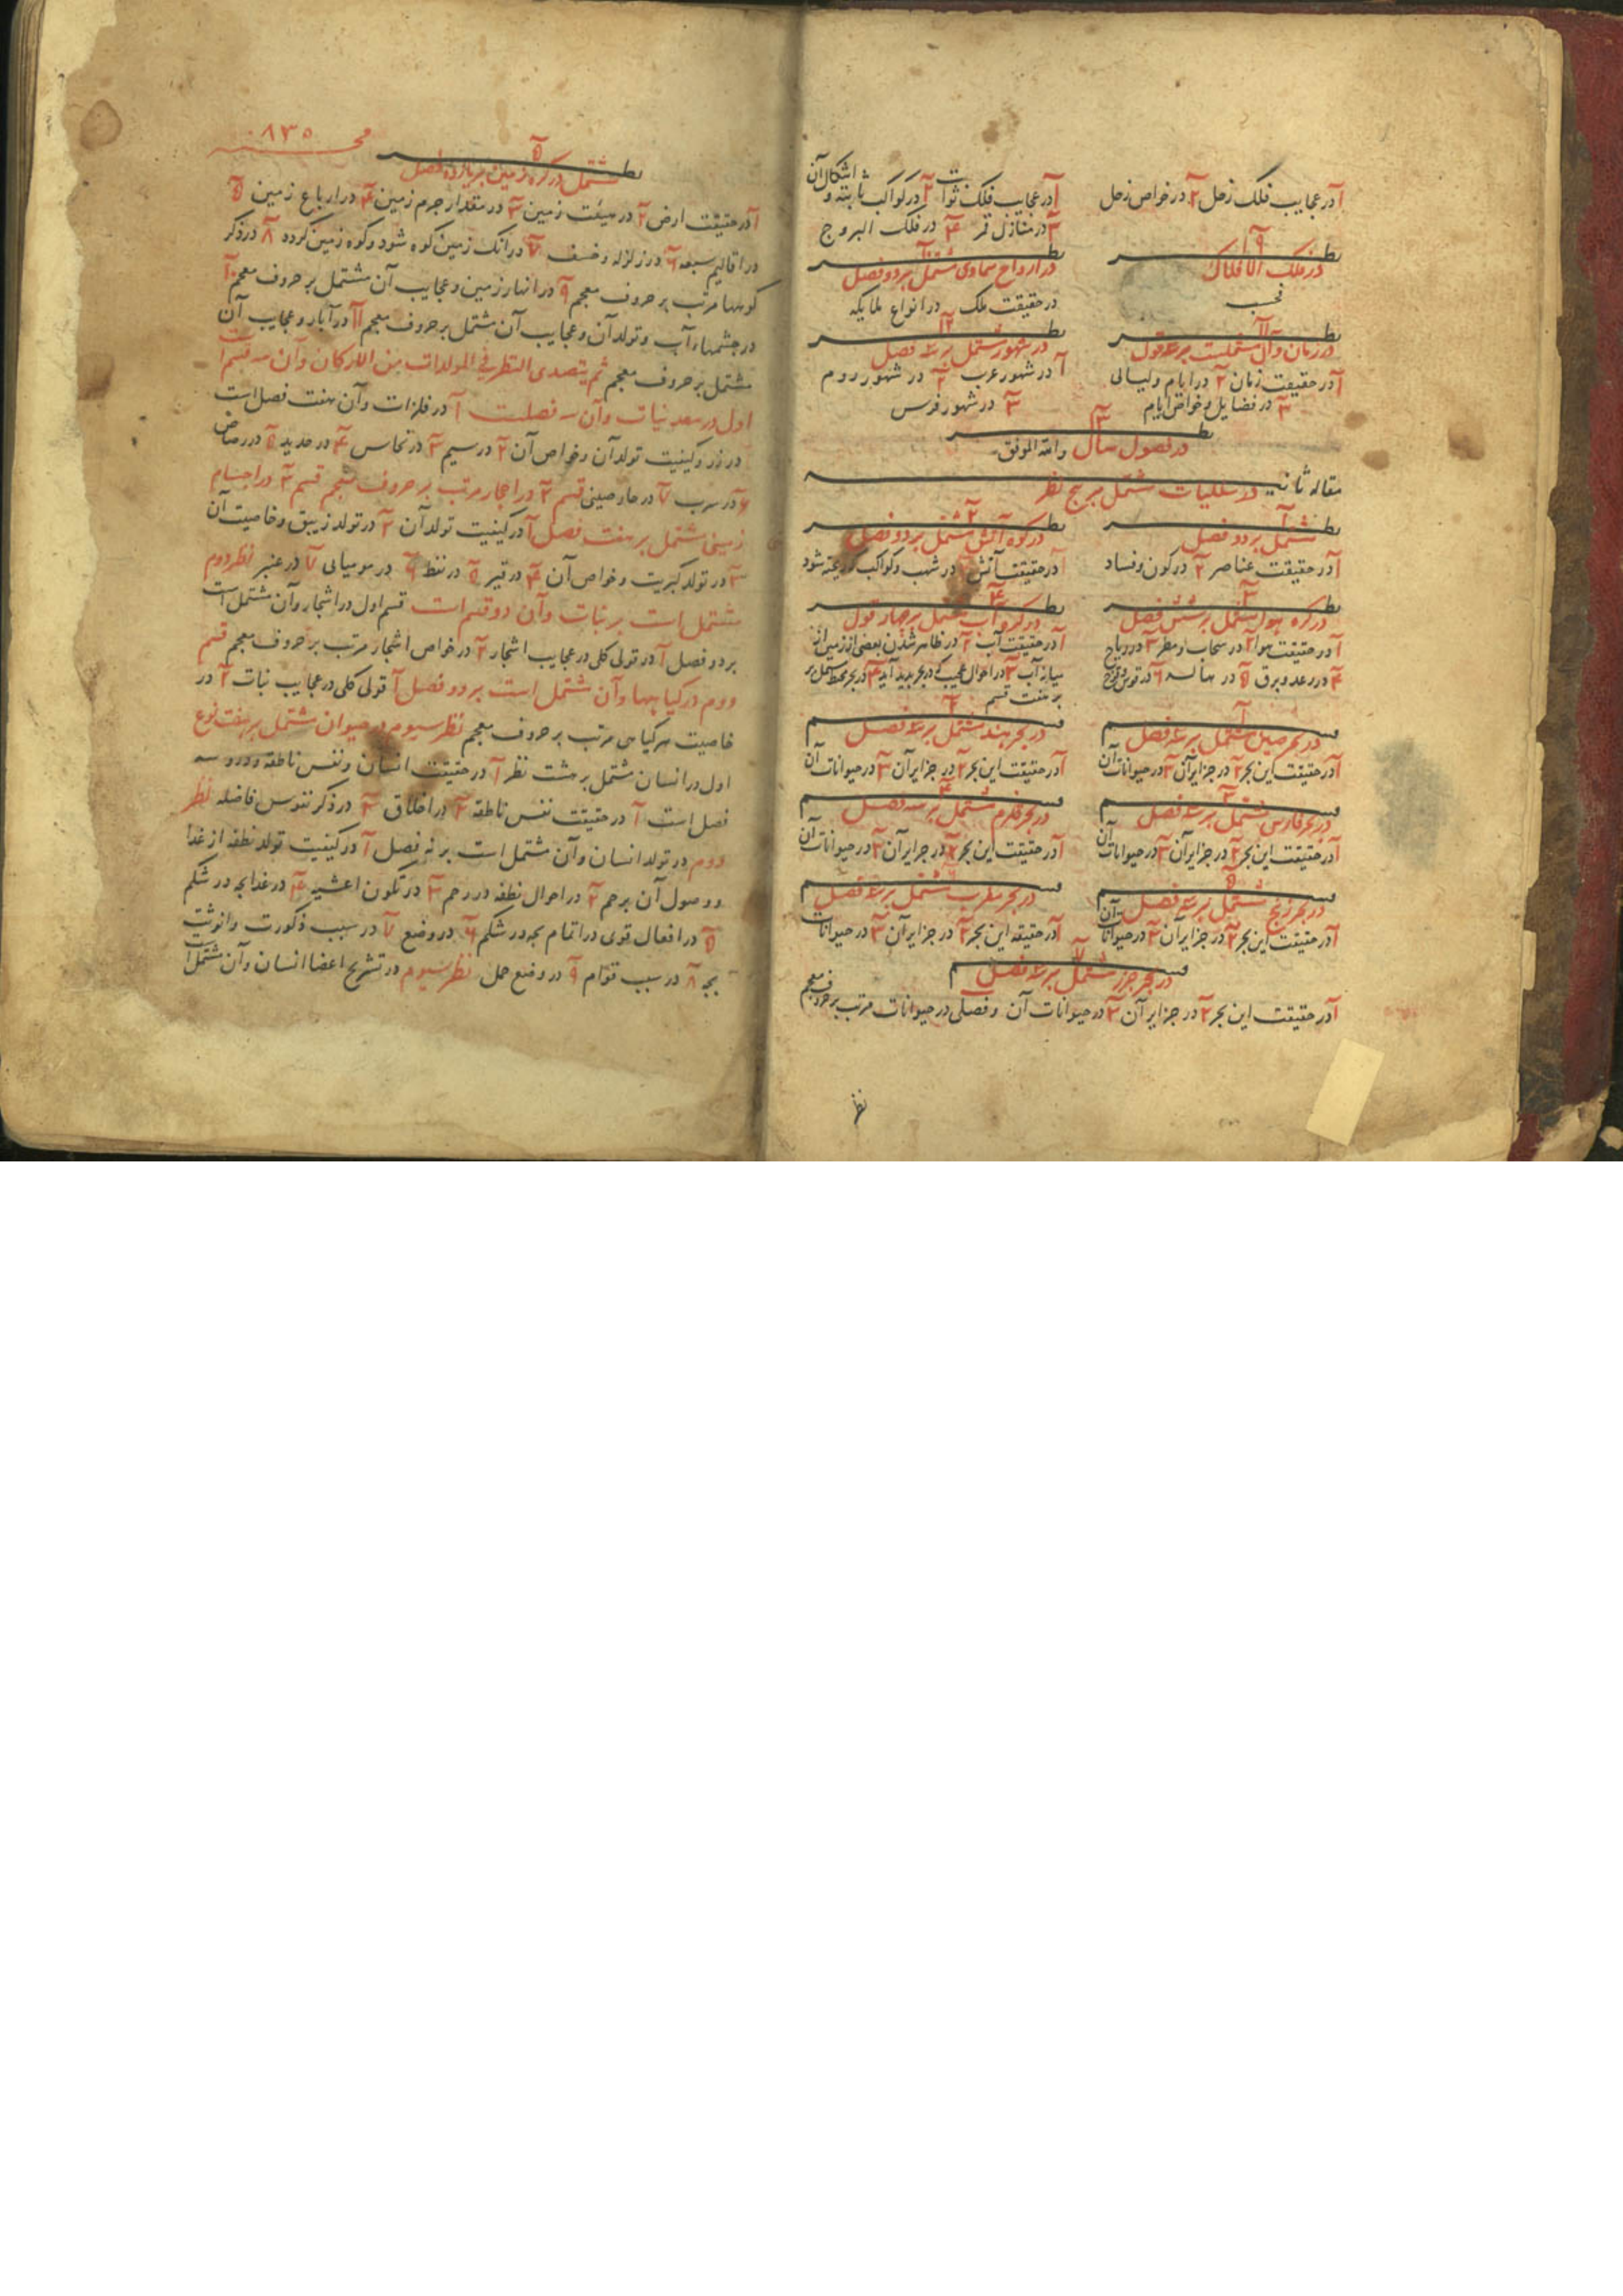 آ در عجایب فلک زحل ۲ در خواص زحل
آ در عجایب فلک ثوابت ۲ در کواکب ثابته و اشکال آن
۳ در منازل قمر ۴ در فلک البروج
نظر ۹
در فلک الافلاک
فحسب
نظر ۱۰
در ارواح سماوی مشتمل بر دو فصل
در حقیقت ملک در انواع ملایکه
نظر ۱۱
در زمان و آن مشتملست بر سه قول
آ در حقیقت زمان ۲ در ایام و لیالی
۳ در فضایل و خواص ایام
نظر ۱۲
در شهور مشتمل بر سه فصل
آ در شهور عرب ۲ در شهور روم
۳ در شهور فرس
نظر ۱۳
در فصول سال والله الموفق
مقاله ثانیه در سفلیات مشتمل بر پنج نظر
نظر آ
مشتمل بر دو فصل
آ در حقیقت عناصر ۲ در کون و فساد
نظر ۲
در کره آتش مشتمل بر دو فصل
آ در حقیقت آتش ۲ در شهب و کواکب که ریخته شود
نظر ۳
در کره هوا مشتمل بر شش فصل
آ در حقیقت هوا ۲ در سحاب و مطر ۳ در ریاح
۴ در رعد و برق ۵ در هاله ۶ در قوس و قزح
نظر ۴
در کره آب مشتمل بر چهار قول
آ در حقیقت آب ۲ در ظاهر شدن بعضی از زمین از
میان آب ۳ در احوال عجیب که در بحر پدید آید ۴ در بحر محیط مشتمل بر
بر هفت قسم
قسم آ
در بحر صین مشتمل بر سه فصل
آ در حقیقت این بحر ۲ در جزایر آن ۳ در حیوانات آن
قسم ۲
در بحر هند مشتمل بر سه فصل
آ در حقیقت این بحر ۲ در جزایر آن ۳ در حیوانات آن
قسم ۳
در بحر فارس مشتمل بر سه فصل
آ در حقیقت این بحر ۲ در جزایر آن ۳ در حیوانات آن
قسم ۴
در بحر قلزم مشتمل بر سه فصل
آ در حقیقت این بحر ۲ در جزایر آن ۳ در حیوانات آن
قسم ۵
در بحر زنج مشتمل بر سه فصل
آ در حقیقت این بحر ۲ در جزایر آن ۳ در حیوانات آن
قسم ۶
در بحر مغرب مشتمل بر سه فصل
آ در حقیقه این بحر ۲ در جزایر آن ۳ در حیوانات
قسم ۷
در بحر خزر مشتمل بر سه فصل
آ در حقیقت این بحر ۲ در جزایر آن ۳ در حیوانات آن و فصلی در حیوانات مرتب بر حروف معجم
نظر
۸۳۵
نظر ۵
مشتمل در کره زمین بر یازده فصل
آ در حقیقت ارض ۲ در هیئت زمین ۳ در مقدار جرم زمین ۴ در ارباع زمین ۵
در اقالیم سبعه ۶ در زلزله و خسف ۷ در انک زمین کوه شود و کوه زمین کردد ۸ در ذکر
کوهها مرتب بر حروف معجم ۹ در انهار زمین و عجایب آن مشتمل بر حروف معجم ۱۰
در چشمهاء آب و تولد آن و عجایب آن مشتمل بر حروف معجم ۱۱ در آبار و عجایب آن
مشتمل بر حروف معجم ثم یتصدی النظر فی المولدات من الارکان و آن سه قسم است
اول در معدنیات و آن سه فصلست آ در فلزات و آن هفت فصل است
در زر و کیفیت تولد آن و خواص آن ۲ در سیم ۳ در نحاس ۴ در حدید ۵ در رصاص
۶ در سرب ۷ در خار صینی قسم ۲ در احجار مرتب بر حروف معجم قسم ۳ در اجسام
زمینی مشتمل بر هفت فصل آ در کیفیت تولد آن ۲ در تولد زیبق و خاصیت آن
۳ در تولد کبریت و خواص آن ۴ در قیر ۵ در نفط ۶ در مومیایی ۷ در عنبر نظر دوم
مشتمل است بر نبات و آن دو قسم است قسم اول در اشجار و آن مشتمل است
بر دو فصل آ در قولی کلی در عجایب اشجار ۲ در خواص اشجار مرتب بر حروف معجم قسم
دوم در کیاهها و آن مشتمل است بر دو فصل آ قولی کلی در عجایب نبات ۲ در
خاصیت هر کیاهی مرتب بر حروف معجم نظر سیوم در حیوان مشتمل بر هفت نوع
اول در انسان مشتمل بر هشت نظر آ در حقیقت انسان و نفس ناطقه و درو سه
فصل است آ در حقیقت نفس ناطقه ۲ در اخلاق ۳ در ذکر نفوس فاضله نظر
دوم در تولد انسان و آن مشتمل است بر نه فصل آ در کیفیت تولد نطفه از غدا
و وصول آن برحم ۲ در احوال نطفه در رحم ۳ در تکون اعشیه ۴ در غدا بچه در شکم
۵ در افعال قوی در اتمام بچه در شکم ۶ در وضع ۷ در سبب ذکورت و انوثیت
بچه ۸ در سبب توام ۹ در وضع حمل نظر سیوم در تشریح اعضا انسان و آن مشتمل است